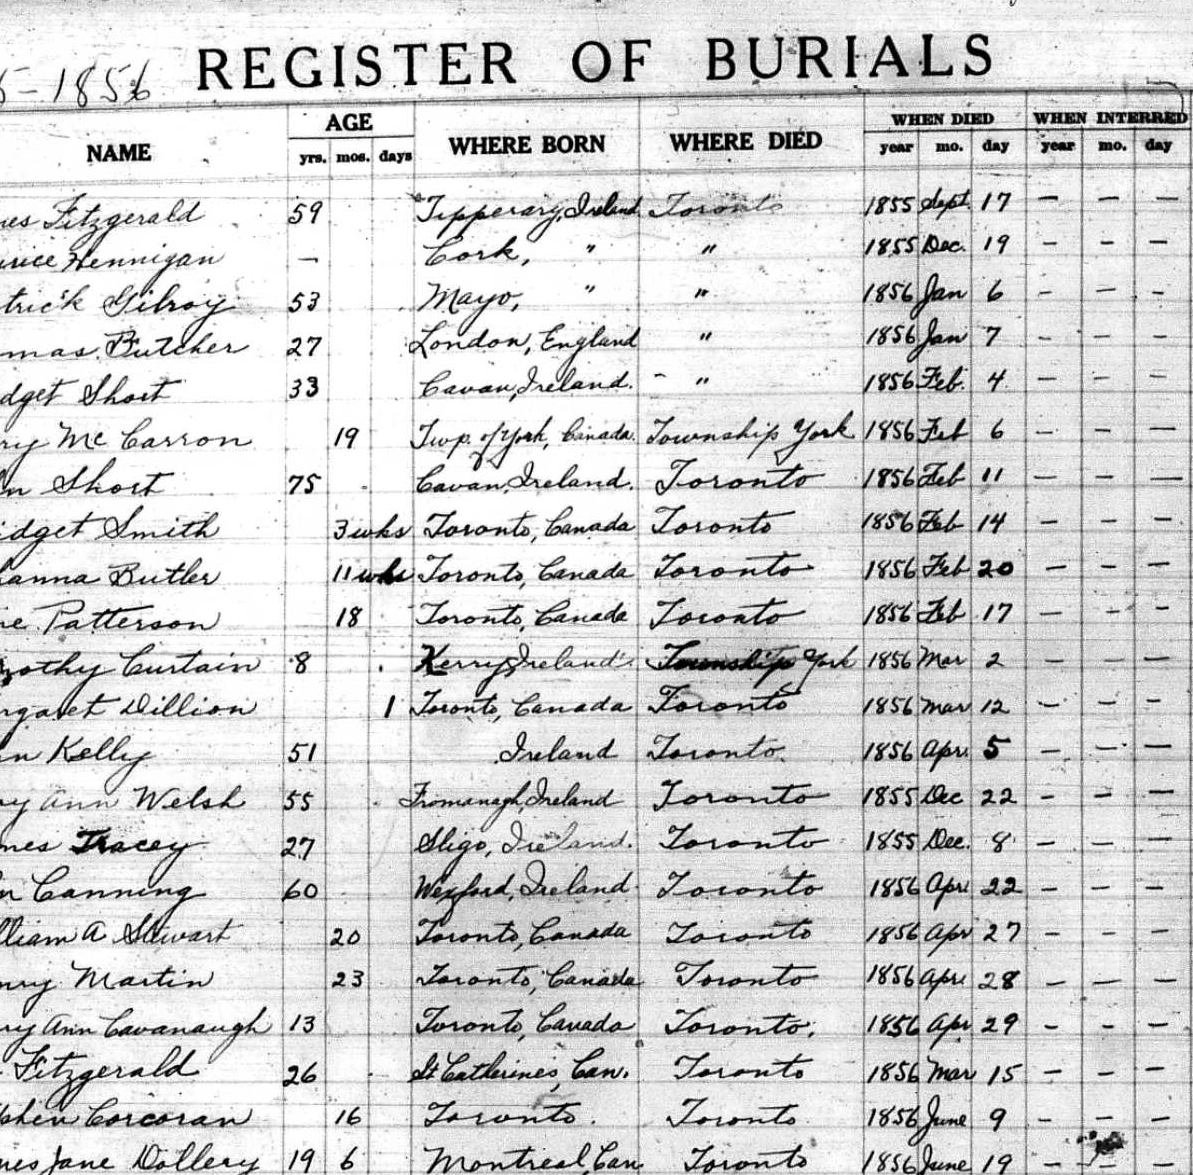 5-1856 REGISTER OF BURIALS
NAME AGE WHERE BORN WHERE DIED WHEN DIED WHEN INTERRED
yrs. mos. days year mo. day year mo. day
es Fitzgerald 59 Tipperary, Ireland Toronto 1855 Sept. 17 — — —
Hennigan — Cork, " " 1855 Dec. 19 — — —
trick Gilroy 53 Mayo, " " 1856 Jan 6 — — —
mas Butcher 27 London, England " 1856 Jan 7 — — —
dget Short 33 Cavan, Ireland. " 1856 Feb. 4 — — —
ry Mc Carron 19 Twp. of York, Canada. Township York 1856 Feb 6 — — —
n Short 75 Cavan, Ireland. Toronto 1856 Feb 11 — — —
idget Smith 3 wks Toronto, Canada Toronto 1856 Feb 14 — — —
anna Butler 11 wks Toronto, Canada Toronto 1856 Feb 20 — — —
ne Patterson 18 Toronto, Canada Toronto 1856 Feb 17 — — —
mothy Curtain 8 Kerry, Ireland. Township York 1856 Mar 2 — — —
rgaret Dillion 1 Toronto, Canada Toronto 1856 Mar 12 — — —
n Kelly 51 Ireland Toronto 1856 Apr. 5 — — —
ry Ann Welsh 55 Fromanagh, Ireland Toronto 1855 Dec 22 — — —
mes Tracey 27 Sligo, Ireland. Toronto 1855 Dec. 8 — — —
n Canning 60 Wexford, Ireland Toronto 1856 Apr. 22 — — —
lliam A Stewart 20 Toronto, Canada Toronto 1856 Apr 27 — — —
nry Martin 23 Toronto, Canada Toronto 1856 Apr. 28 — — —
ry Ann Cavanaugh 13 Toronto, Canada Toronto. 1856 Apr 29 — — —
Fitzgerald 26 St Catherines, Can. Toronto 1856 Mar 15 — — —
phen Corcoran 16 Toronto. Toronto. 1856 June 9 — — —
nes Jane Dollery 19 6 Montreal, Can. Toronto 1856 June 19 — — —